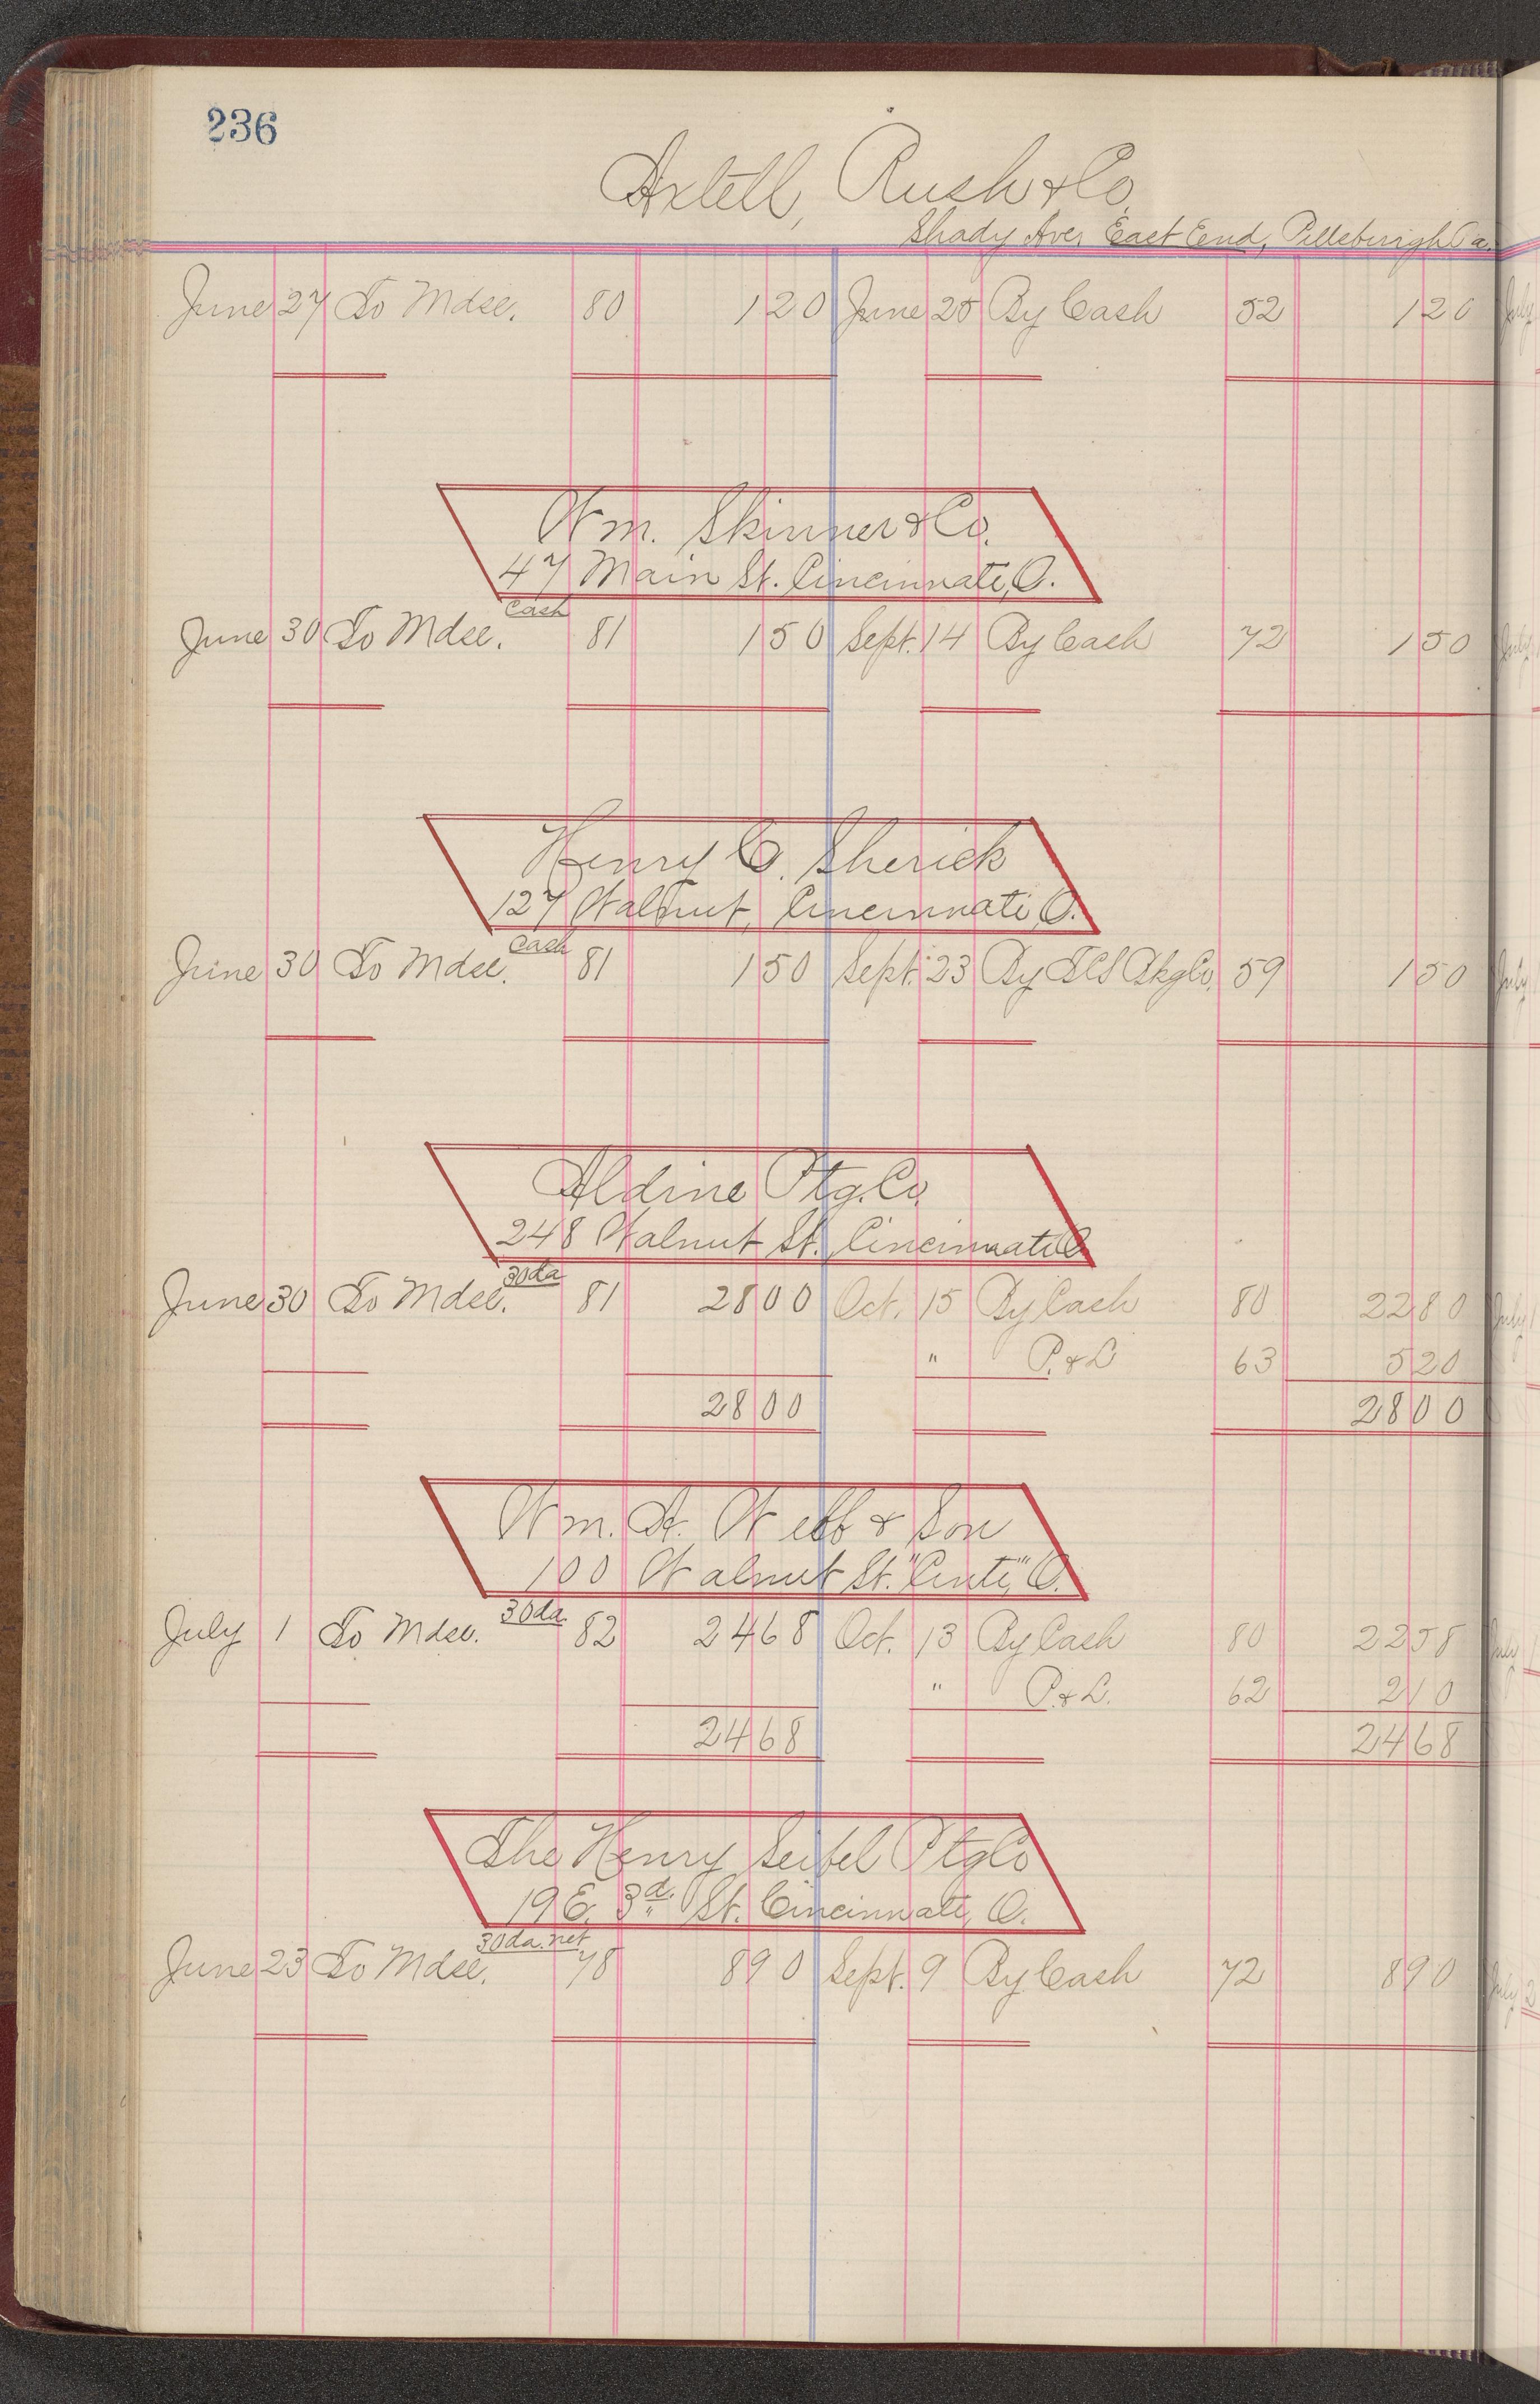 236
Axtell, Rush & Co.
Shady Ave, East End, Pittsburigh Pa.
June 27 To Mdse. 80 120 June 25 By Cash 52 120
Wm. Skinner & Co.
47 Main St. Cincinnati, O.
Cash
June 30 To Mdse. 81 150 Sept. 14 By Cash 72 150
Henry C. Sherick
127 Walnut, Cincinnati, O.
Cash
June 30 To Mdse. 81 150 Sept. 23 By Pkg Co. 59 150
Aldine Ptg. Co.
248 Walnut St. Cincinnati O.
30 da
June 30 To Mdse. 81 2800 Oct. 15 By Cash 80 2280
" P. & L 63 520
2800 2800
Wm. A. Webb & Son
100 Walnut St. "Cinti," O.
30 da.
July 1 To Mdse. 82 2468 Oct. 13 By Cash 80 2258
" P. & L. 62 210
2468 2468
The Henry Seibel Ptg Co
19 E. 3d. St. Cincinnati, O.
30 da. net
June 23 To Mdse. 78 890 Sept. 9 By Cash 72 890